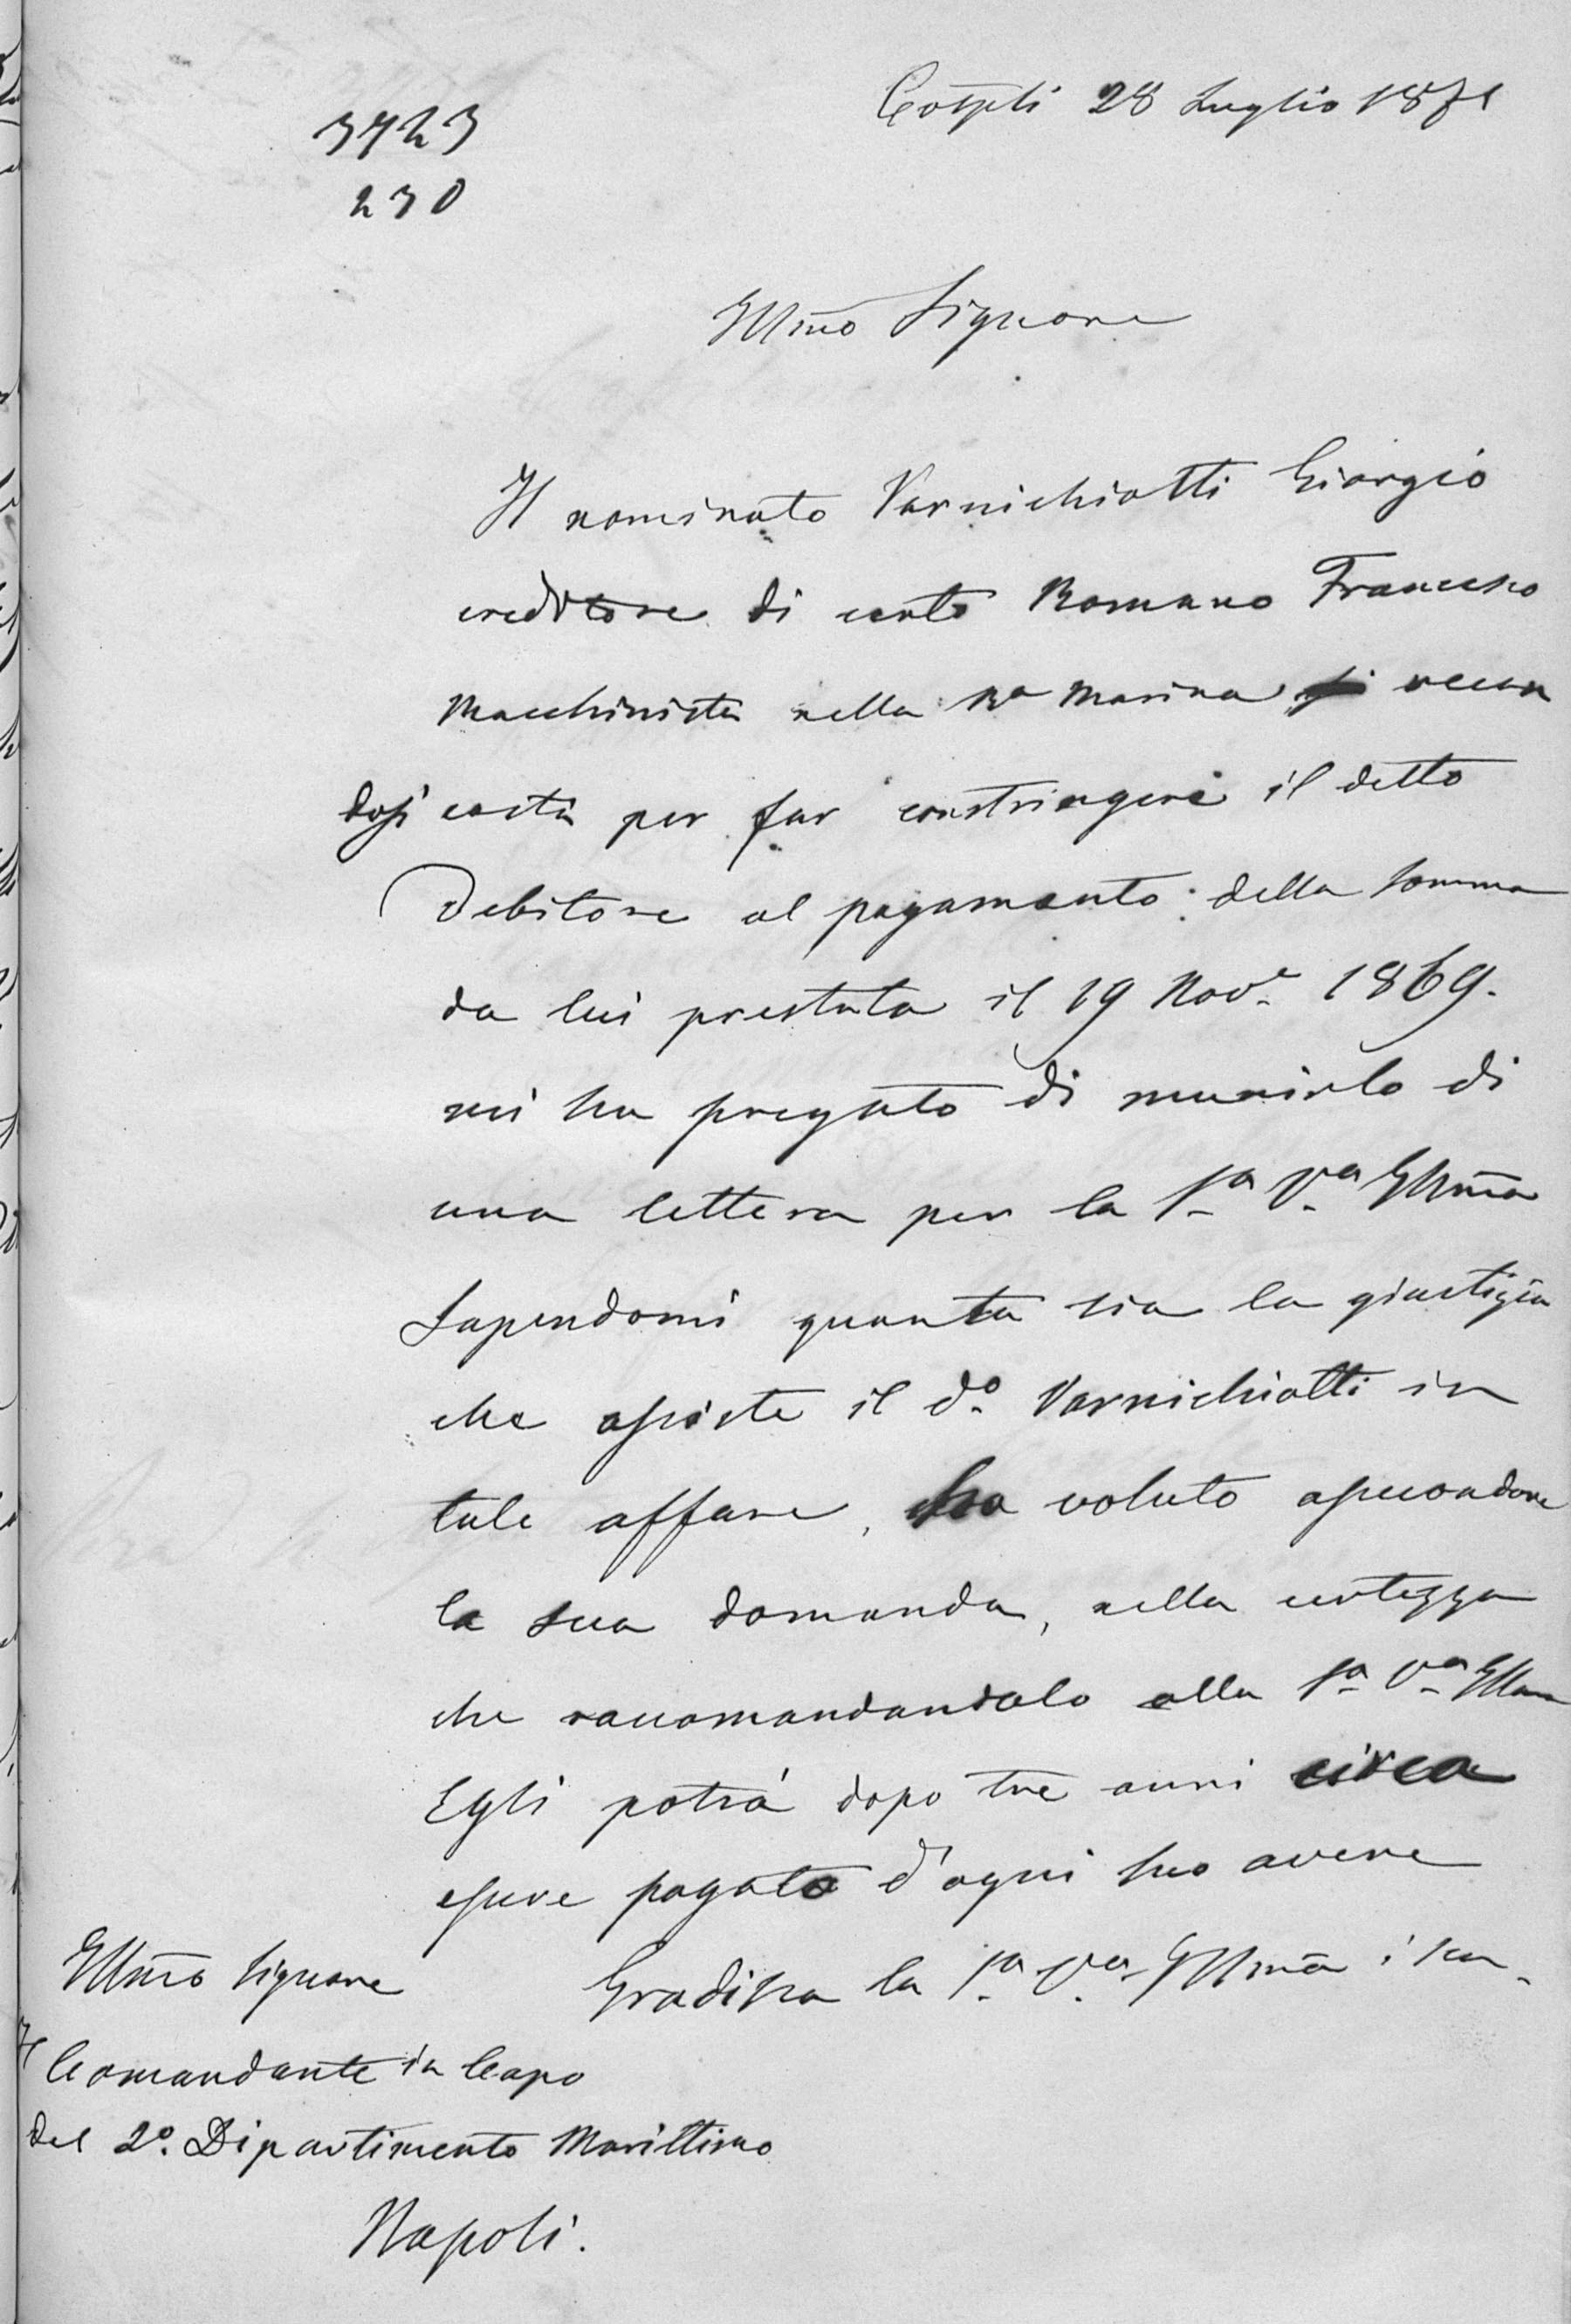 Costpli 28 Luglio 1871
3723
230
Illmo Signore
Il nominato Varnichiotti Giorgio
creditore di certo Romano Francesco
Macchinista nella Ra Marina recan
dosi costà per far constringere il detto
Debitore al pagamento della somma
da lui prestata il 19 Nove 1869.
mi ha pregato di munirlo di
una lettera per la Sa Va Illma
Sapendomi quanta sia la giustizia
che assiste il do Varnichiotti in
tale affare, ho voluto assecondare
la sua domanda, nella certezza
che raccomandandolo alla Sa Va Illma
Egli potrà dopo tre anni circa
essere pagato d'ogni suo avere
Gradisca la Sa Va Illma i sen.
Illmo Signore
Il Comandante in Capo
del 2o Dipartimento Marittimo
Napoli.